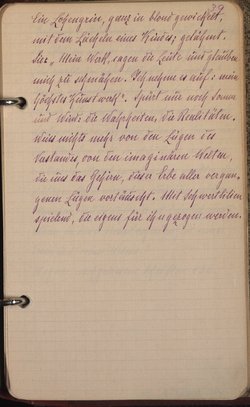 39
Ein Lohengrin, ganz in blond gewickelt,
mit dem Lächeln eines Kindes; gelähmt.
Der „Mein Werk", sagen die Leute und glauben
mich zu schmähen. Ich nehm es auf: mein
höchstes Kunstwerk". Spürt nur noch Sonne
und Wind: die Wahrheiten, die Realitäten.
Weiss nichts mehr von den Lügen des
Verstandes von den imaginären Welten,
die uns das Gehirn, dieser Erbe aller vergan-
genen Lügen vortäuscht. Mit Schwertlilien
spielend, die eigens für ihn gezogen werden.